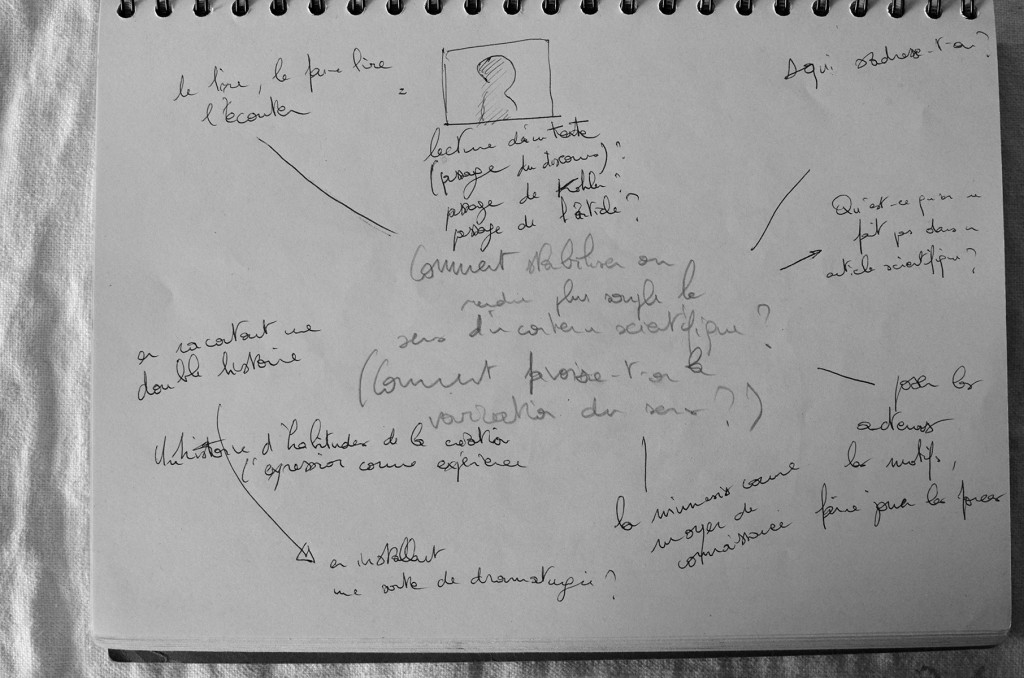 le lire, le faire lire =
l'écouter
lecture d'un texte
(passage du discours)?
passage de Kohler?
passage de l'article?
A qui s'adresse-t-on?
Qu'est-ce qu'on ne
fait pas dans un
article scientifique?
Comment stabiliser ou
rendre plus souple le
sens d'un contenu scientifique?
(Comment favorise-t-on la
variation du sens?)
en racontant une
double histoire
Un histoire d'habitudes de la création
l'expression comme expérience
en installant
une sorte de dramaturgie?
la mimesis comme
moyen de
connaissance
poser les
acteurs
les motifs,
faire jouer les forces